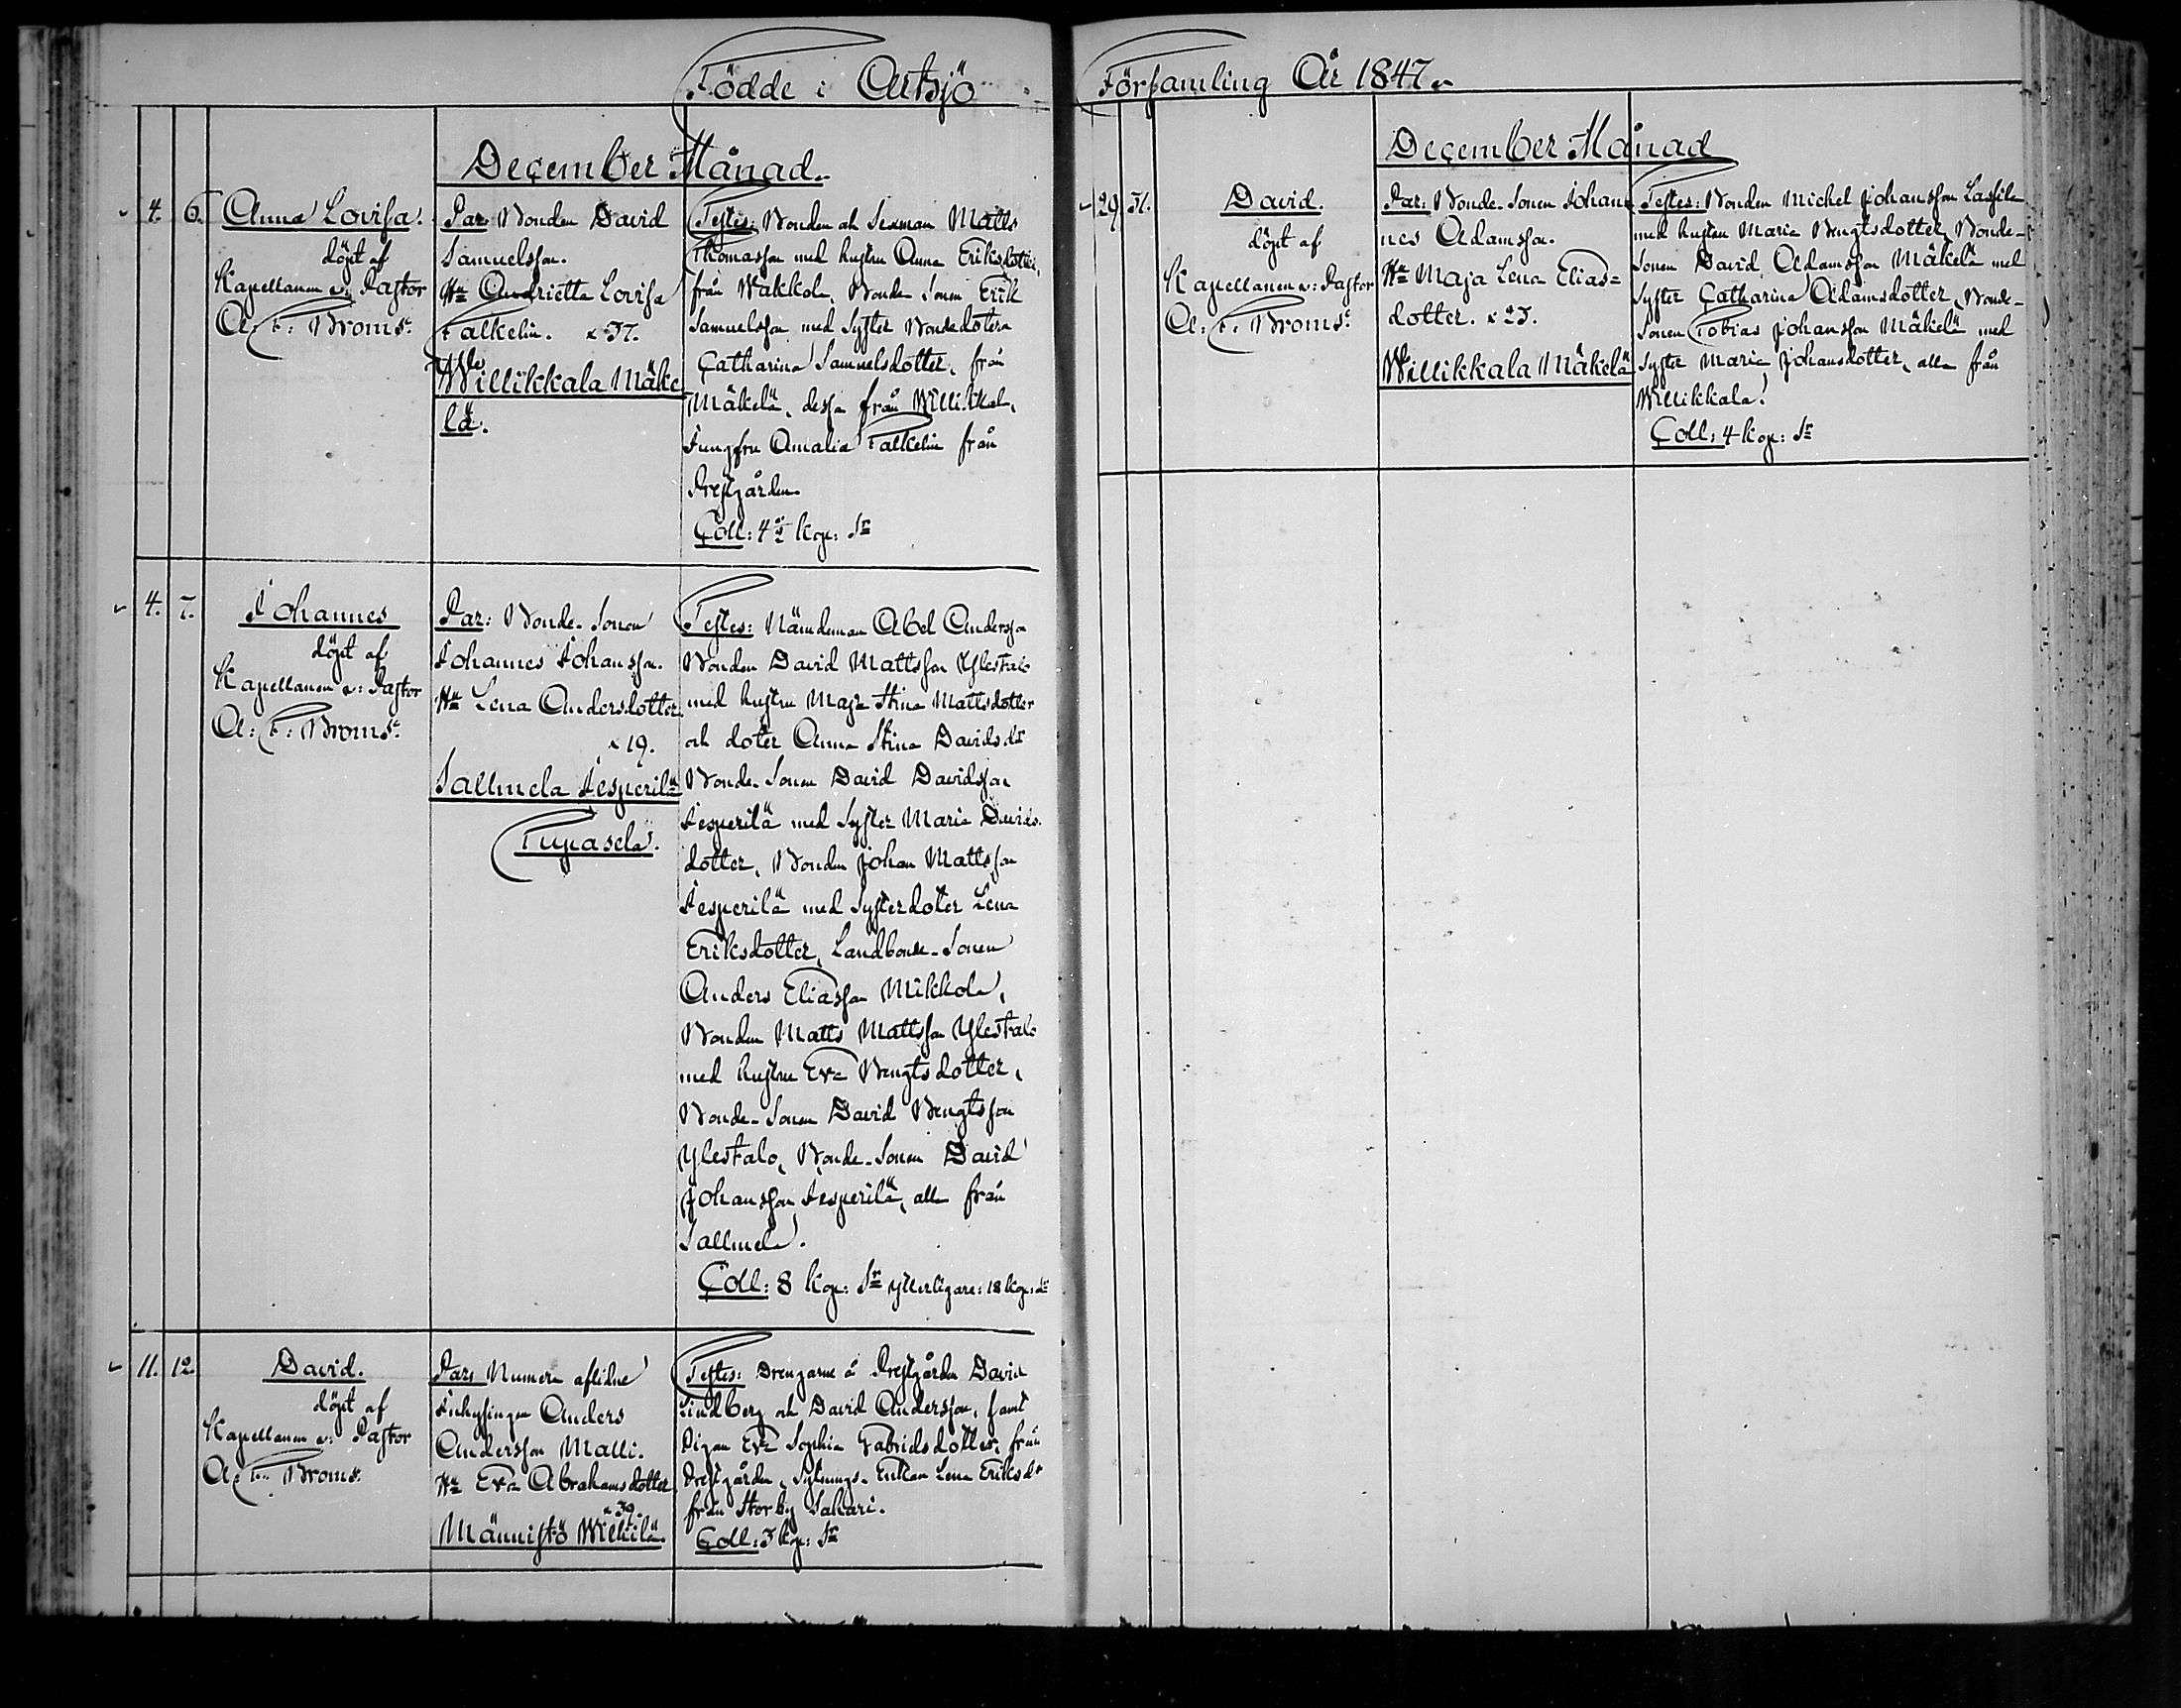 Födde i Artsjö
December Månad.
4. 6. Anna Lovisa.
döpt af
Kapellanen v: Pastor
A: F: Broms.
Par: Bonden David
Samuelsson.
Hu Lovisa
Falkelin. 37.
Willikkala Mäke
lä.
Testes: Bonden och Sexman Matts
Thomasson med hustru Anna Eriksdotter,
från Wakkola, Bonde Sonen Erik
Samuelsson med Syster Bondedotern
Catharina Samuelsdotter, från
Mäkelä, dessa från Willikkala,
Jungfru Amalia Falkelin från
Prestgården
Coll: 4½ kop: Sr
4. 7. Johannes
döpt af
Kapellanen v: Pastor
A: F: Broms.
Par: Bonde-Sonen
Johannes Johansson.
Hu Lena Andersdotter
19.
Sallmela Jesperilä
Tupasela.
Testes: Nämdeman Abel Andersson
Bonden David Mattsson Ylestalo
med hustru Maja Stina Mattsdotter
och doter Anna Stina Davidsdr
Bonde-Sonen David Davidsson
Jesperilä med Syster Maria Davids
dotter, Bonden Johan Mattsson
Jesperilä med Systerdoter Lena
Eriksdotter, Landbonde-Sonen
Anders Eliasson Mikkola,
Bonden Matts Mattsson Ylestalo
med hustru Eva Bengtsdotter,
Bonde-Sonen David Bengtsson
Ylestalo, Bonde-Sonen David
Johansson Jesperilä, alla från
Sallmela.
Coll: 8 kop: Sr ytterligare: 18 kop: Sr
11. 12. David.
döpt af
Kapellanen v: Pastor
A: F: Broms.
Par: Numera aflidne
Inhysingen Anders
Andersson Malli.
Hu Eva Abrahamsdotter
39.
Männistö Wikkilä.
Testes: Drengarne å Prestgården David
Lindberg och David Andersson, samt
Pigan Eva Sophia Gabrielsdotter, från
Prestgården, Sytnings-Enkan Lena Eriksdr
från Storby Sakari.
Coll: 3 kop: Sr
Församling År 1847.
December Månad
29 31. David.
döpt af
Kapellanen v: Pastor
A: F: Broms.
Par: Bonde-Sonen Johan
nes Adamsson.
Hu Maja Lena Elias=
dotter. 23.
Willikkala Mäkelä
Testes: Bonden Michel Johansson Lassila
med hustru Maria Bengtsdotter, Bonde-
Sonen David Adamsson Mäkelä med
Syster Catharina Adamsdotter, Bonde-
Sonen Tobias Johansson Mäkelä med
Syster Maria Johansdotter, alla från
Willikkala.
Coll: 4 kop: Sr